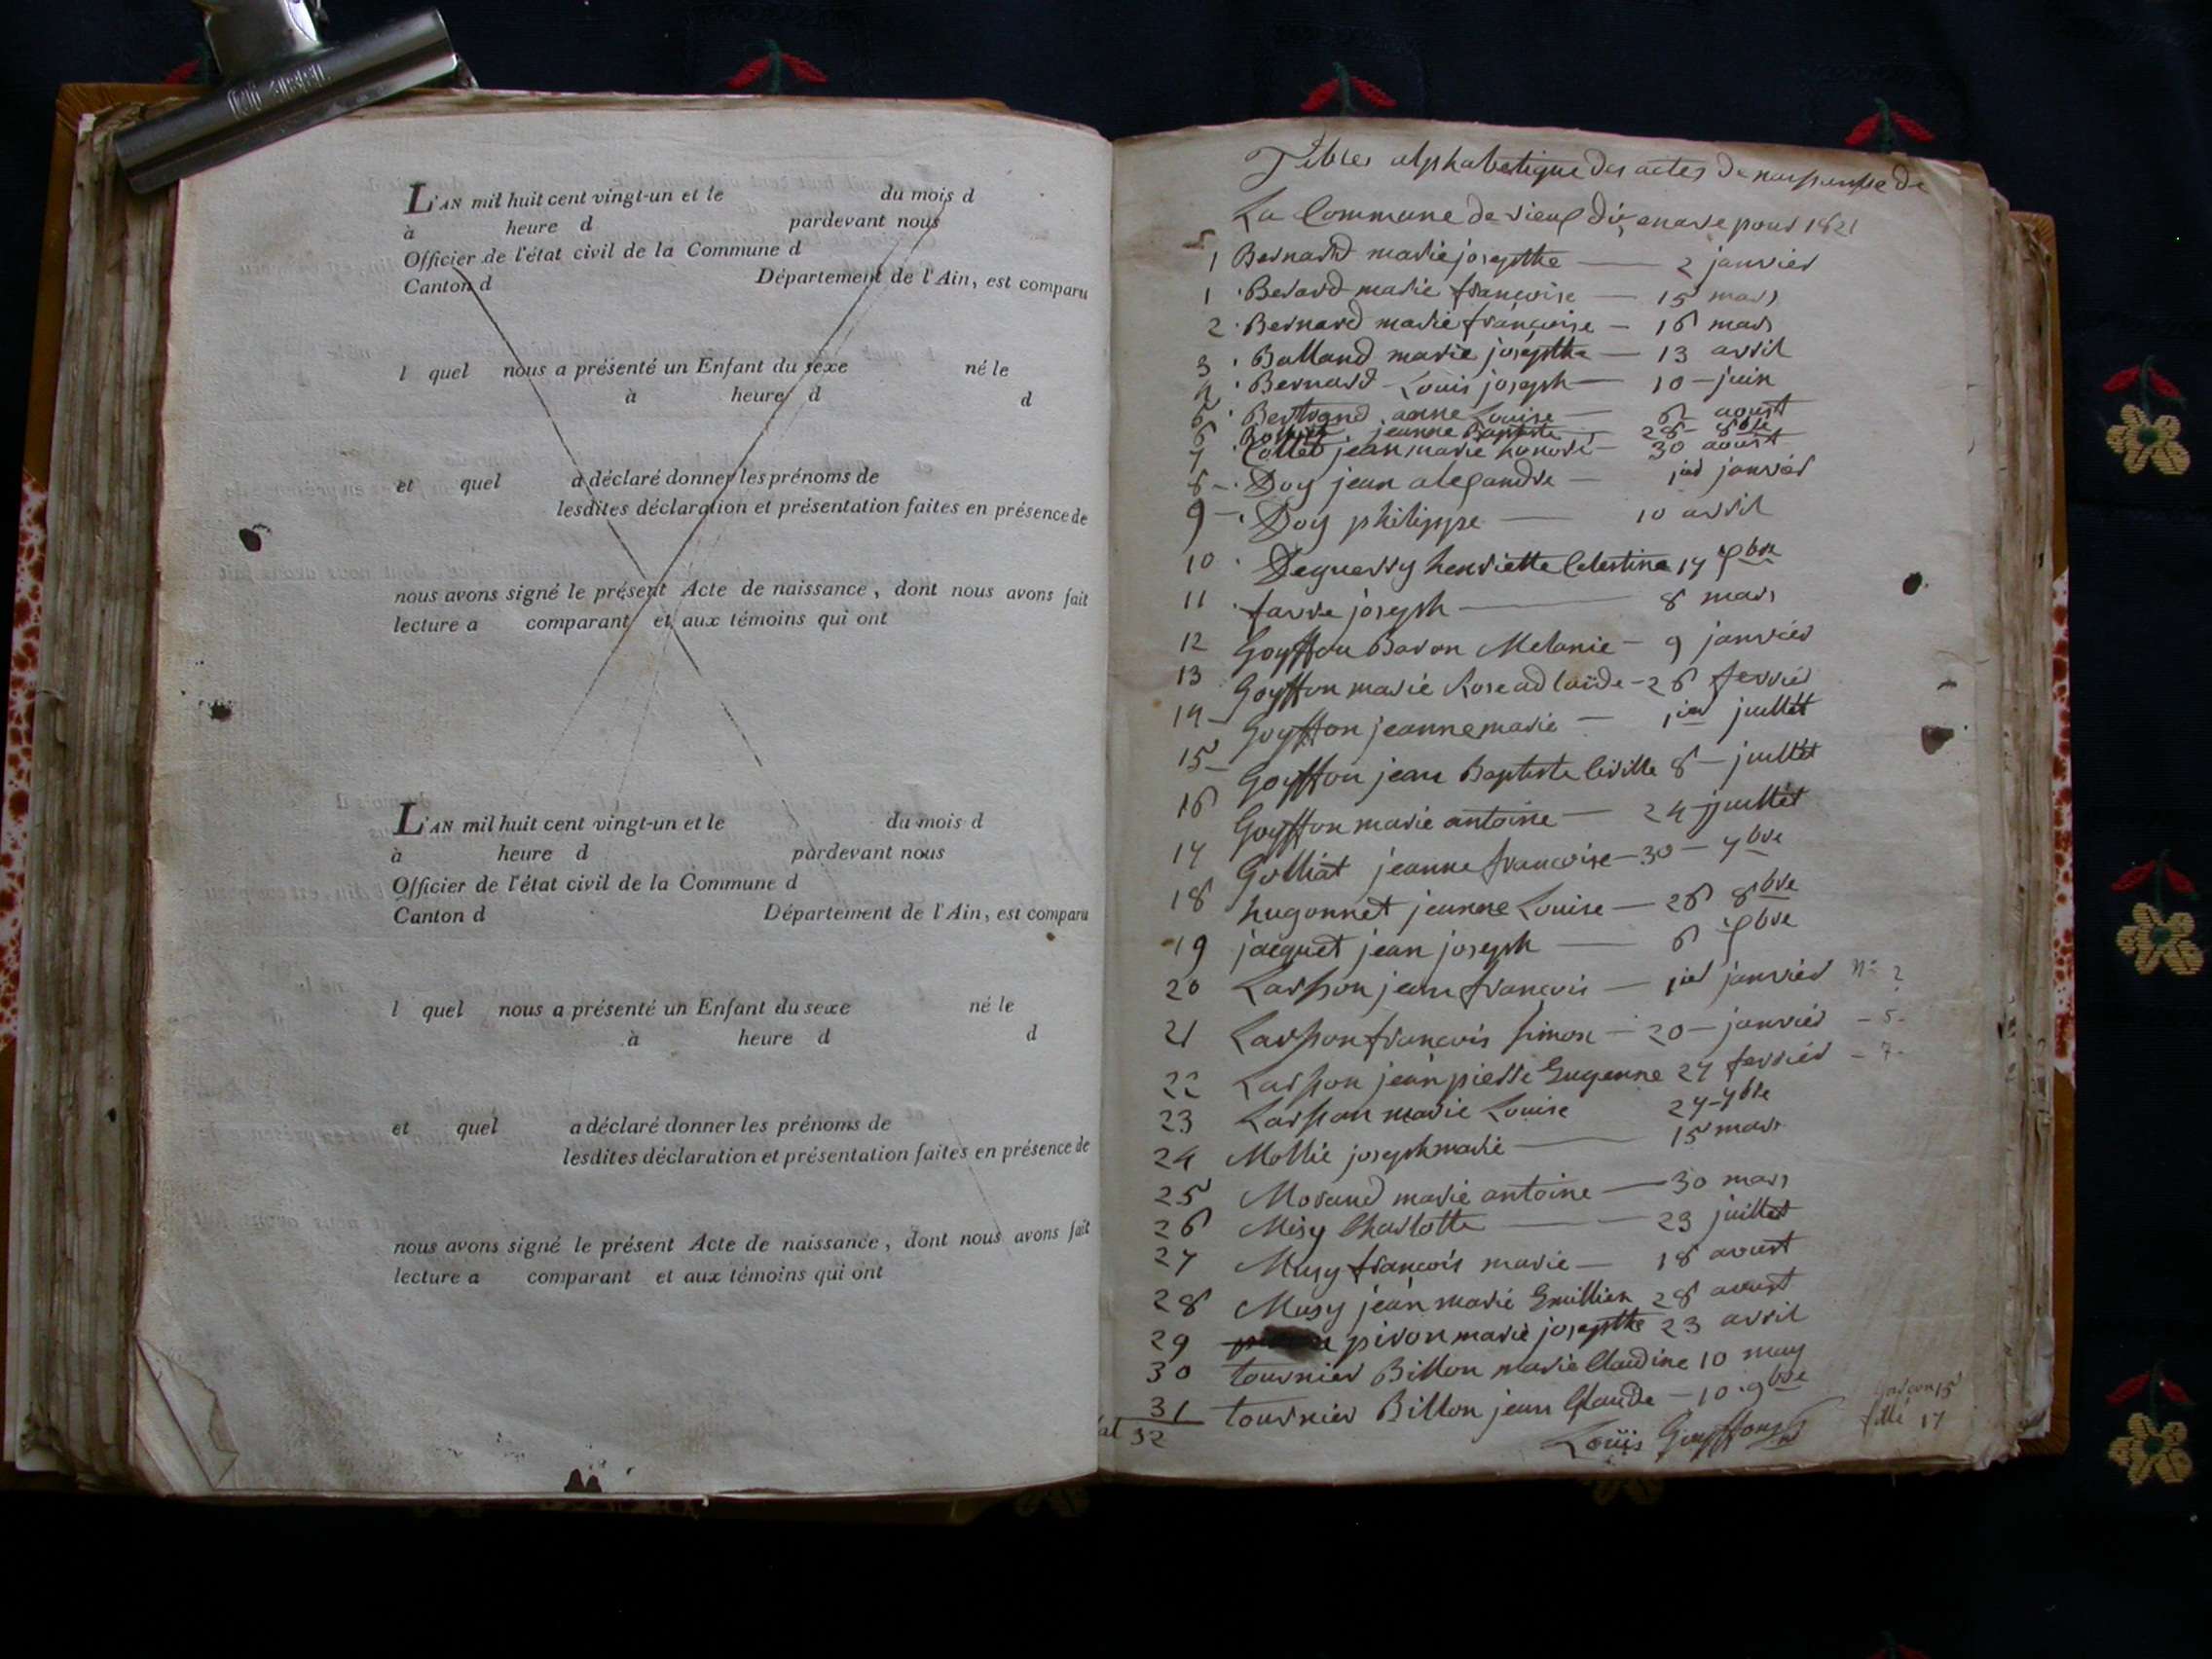 L'AN mil huit cent vingt-un et le du mois d
à heure d pardevant nous
Officier de l'état civil de la Commune d
Canton d Département de l'Ain, est comparu
l quel nous a présenté un Enfant du sexe né le
à heure d d
et quel a déclaré donner les prénoms de
lesdites déclaration et présentation faites en présence de
nous avons signé le présent Acte de naissance, dont nous avons fait
lecture a comparant et aux témoins qui ont
L'AN mil huit cent vingt-un et le du mois d
à heure d pardevant nous
Officier de l'état civil de la Commune d
Canton d Département de l'Ain, est comparu
l quel nous a présenté un Enfant du sexe né le
à heure d d
et quel a déclaré donner les prénoms de
lesdites déclaration et présentation faites en présence de
nous avons signé le présent Acte de naissance, dont nous avons fait
lecture a comparant et aux témoins qui ont
Tables alphabetique des actes de naissance de
La Commune de vieux pour 1821
1 Bernard marie josepthe — 2 janvier
1 Berard marie francoise — 15 mars
2 Bernard marie francoise — 16 mars
3 Balland marie josepthe — 13 avril
4 Bernard Louis joseph — 10 juin
5 Bertrand anne Louise — 6 aoust
6 jeanne Baptiste — 28 8bre
7 Collet jean marie honoré — 30 aoust
8 Doy jean alexandre — 1ier janvier
9 Doy philippe — 10 avril
10 Deguerry henriette Celestine 17 xbre
11 favre joseph — 8 mars
12 Goyffon Baron Melanie — 9 janvier
13 Goyffon marie Rose adlaïde — 26 fevrier
14 Goyffon jeanne marie — 1ier juillet
15 Goyffon jean Baptiste Civille 8 — juillet
16 Goyffon marie antoine — 24 juillet
17 Golliat jeanne francoise — 30 — 7bre
18 hugonnet jeanne Louise — 26 8bre
19 jacquet jean joseph — 6 xbre
20 Larsson jean francois — 1ier janvier n° 2
21 Larsson francois simon — 20 — janvier - 5 -
22 Larsson jean pierre Eugenne 27 fevrier - 7 -
23 Larsson marie Louise 27 - 7bre
24 Mollié joseph marie — 15 mars
25 Morand marie antoine — 30 mars
26 Misy Charlotte — 23 juillet
27 Musy francois marie — 18 aoust
28 Musy jean marie Emillien 28 aoust
29 piron marie josepthe 23 avril
30 tournier Billon marie Claudine 10 may
31 tournier Billon jean Claude — 10 9bre
32
Louis Goyffon
garcon 15
fille 17